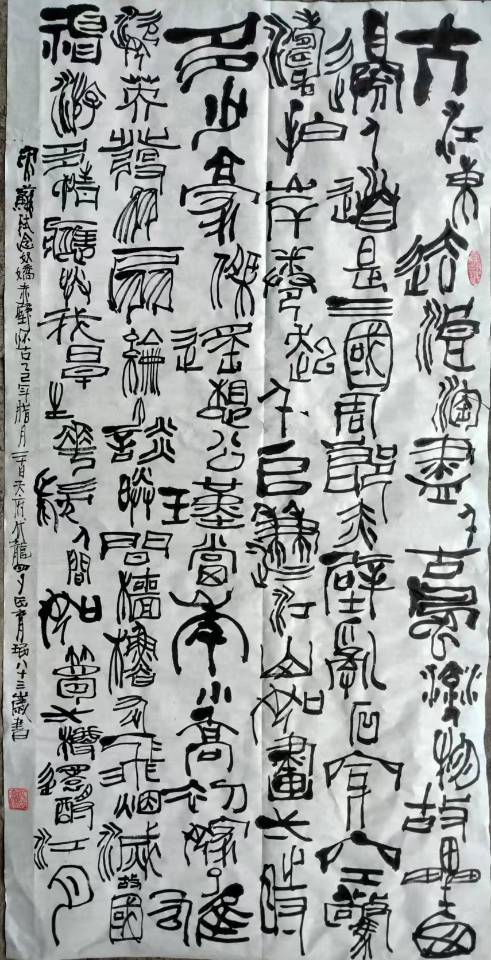 大江東去浪淘盡千古風流人物故壘西
邊人道是三國周郎赤壁亂石穿空驚
濤拍岸卷起千江山如畫一時
多少豪傑遙想公瑾當年小喬初嫁了
姿英發羽扇綸巾談笑間檣櫓灰飛烟滅故國
神游多情應笑我早生華髮人間如夢一樽還酹江月
宋蘇軾念奴嬌赤壁怀古乙巳年腊月八十三歲書